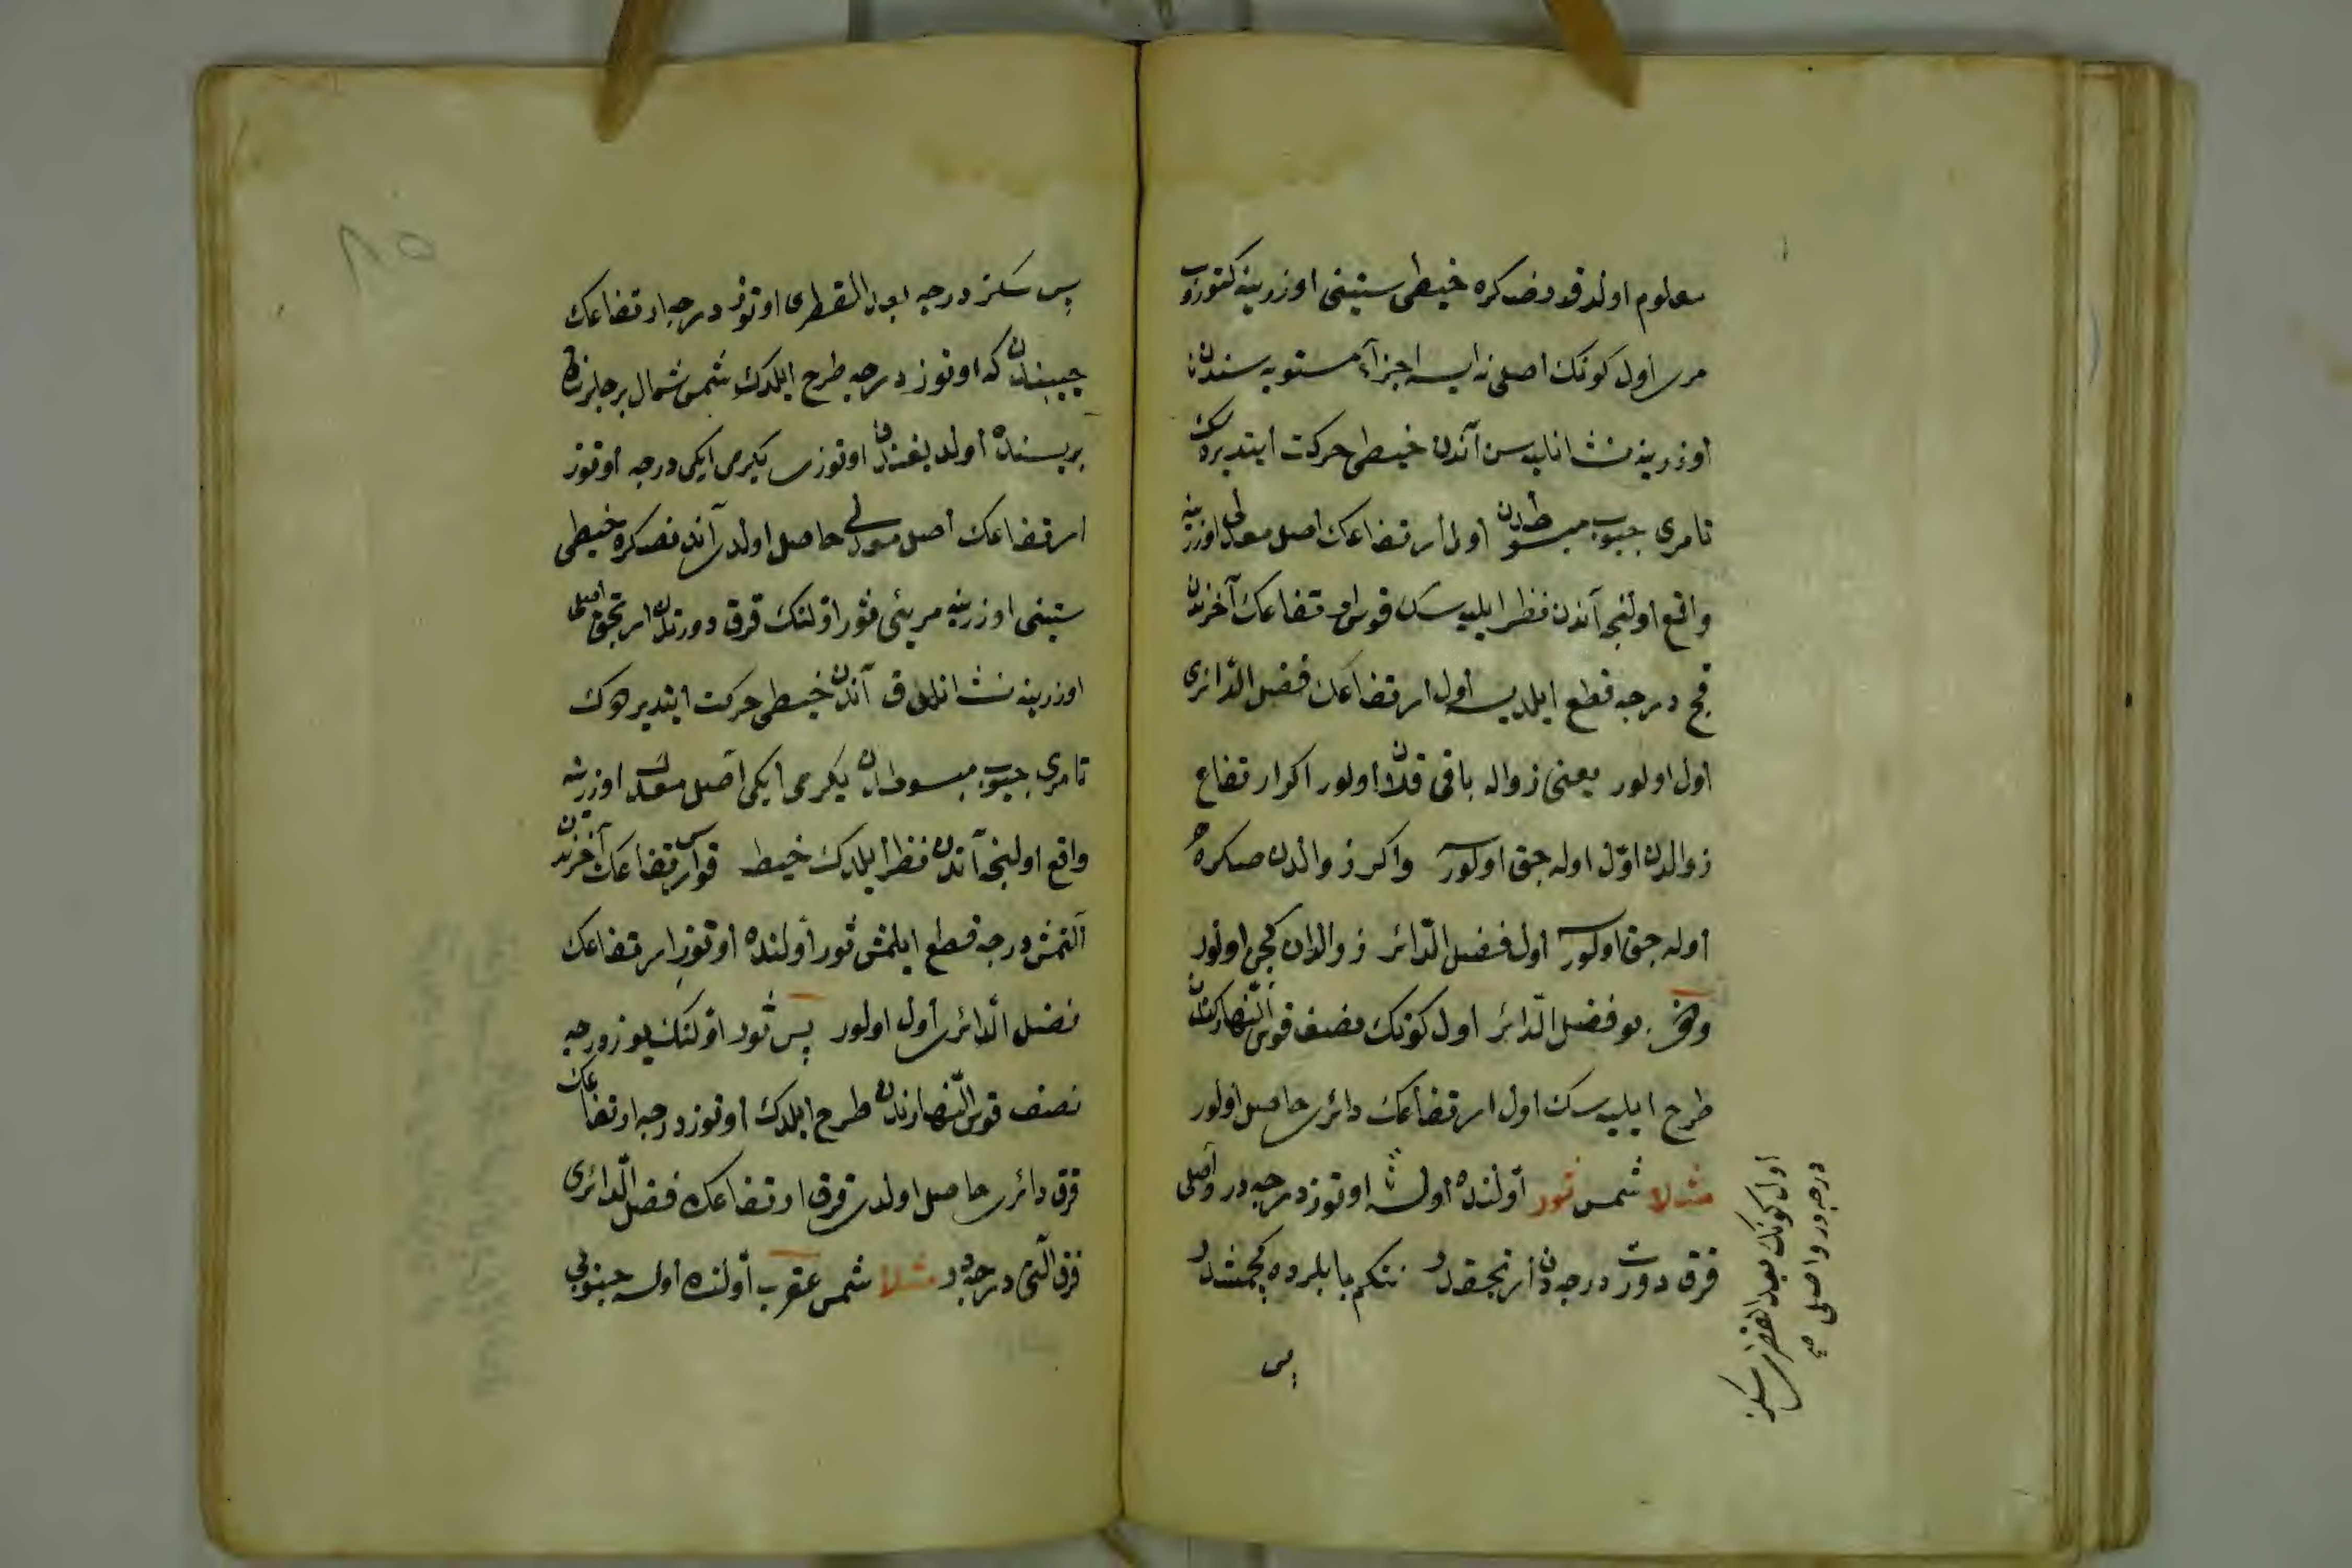 معلوم اولدقدنصكره خيطى ستينى اوزرينه كتوروب
مرى اول كونك اصلى نه ايسه اجزآء مستويه سندن تا
اوزرينه نشانايه سن آندن خيطى حركت ايتديره سك
تا مرى جيوب مبسوطه دن اول ارتفاعك اصل معدلى اوزرينه
واقع اولنجه آندن نظر ايليه سك قوس ارتفاعك آخرندن
قچ درجه قطع ايلديسه اول ارتفاعك فضل الدّائرى
اول اولور يعنى زواله باقى قلان اولور اكر ارتفاع
زوالدن اوّل اوله جق اولورسه واكر زوالدن صكره
اوله جق اولورسه اول فضل الدّائر زوالدن كچن اولور
وهم بو فضل الدّائر اول كونك نصف قوس النّهارندن
طرح ايليه سك اول ارتفاعك دائرى حاصل اولور
مثلا شمس ثور اوّلنده اولسه اوتوز درجه در واصلى
قرق دورت درجه دن ارتجقدر نتكم بابلرده كچمشدر
پس
اول كونك بعد القطرى سكز
درجه در واصلى صح
٨٥
پس سكز درجه بعد القطرى اوتوز درجه ارتفاعك
جيبندن كه اوتوز درجه طرح ايلدك شمس شمال برجلرنك
بريسنده اولديغندن اوتوزى يكرمى ايكى درجه اوتوز
ارتفاعك اصل معدلى حاصل اولدى آندنصكره خيطى
ستينى اوزرينه مريئى ثور اوّلنك قرق دورتدن ارتجق اصلى
اوزرينه نشانلدق آندن خيطى حركت ايتديره رك
تا مرى جيوب مبسوطه دن يكرمى ايكى اصل معدل اوزرينه
واقع اولنجه آندن نظر ايلدك خيط قوس ارتفاعك آخرندن
آلتمش درجه قطع ايلمش ثور اوّلنده اوتوز ارتفاعك
فضل الدّائرى اول اولور پس ثور اوّلنك يوز درجه
نصف قوس النّهارندن طرح ايلدك اوتوز درجه ارتفاعك
قرق دائرى حاصل اولدى قرق ارتفاعك فضل الدّائرى
قرق آلتى درجه در مثلا شمس عقرب اوّلنده اولسه جنوبى